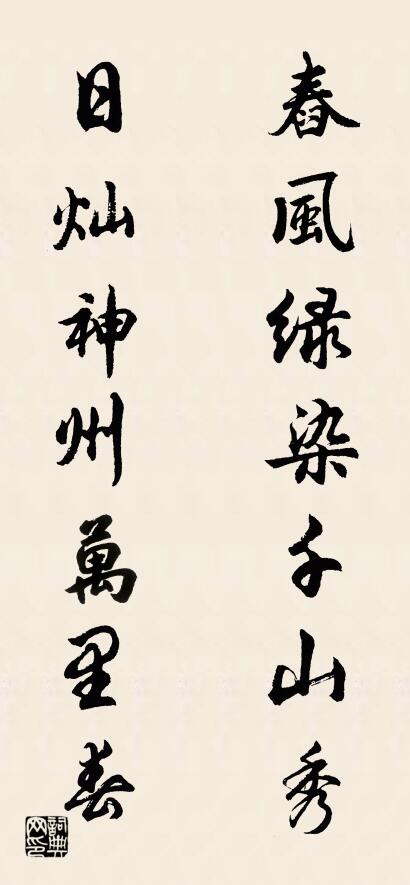 春風绿染千山秀
日灿神州萬里春
詞典
网印